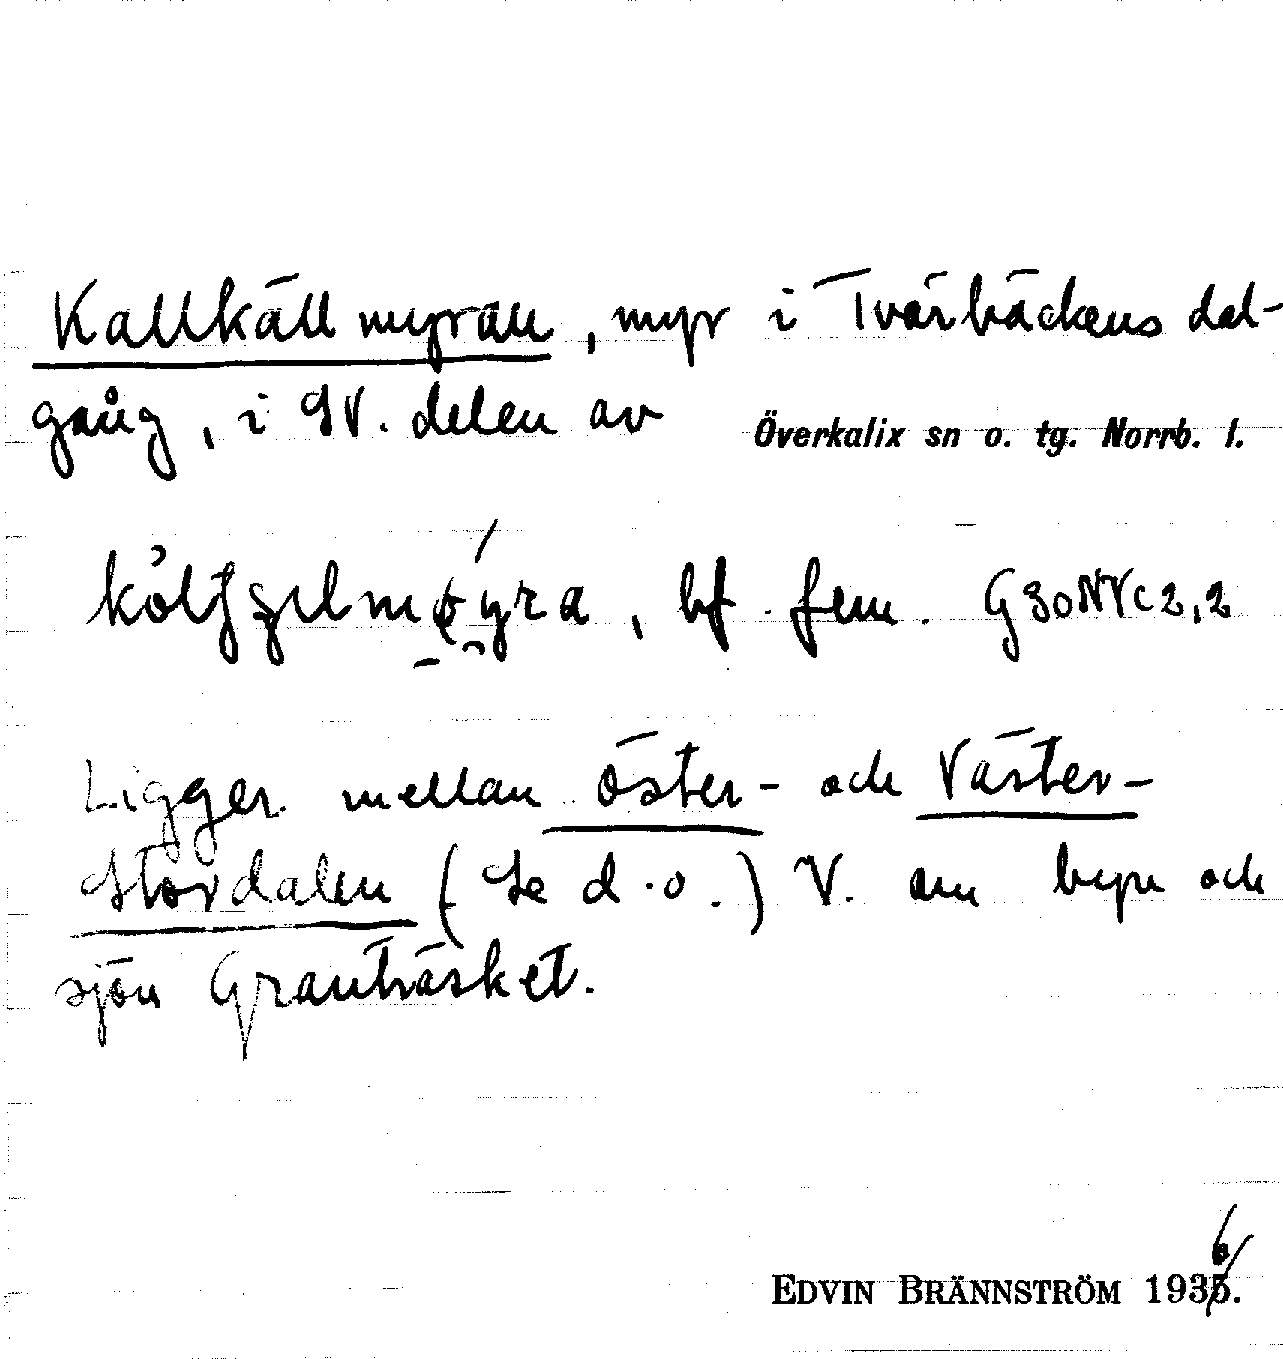 Kallkällmyran, myr i Tvärbäckens dal-
gång, i SV. delen av Överkalix sn o. tg. Norrb. l.
bf. fem. G30NVc2,2
Ligger mellan Öster- och Väster-
Stordalen (Se d.o.) V. om byn och
sjön Granträsket.
EDVIN BRÄNNSTRÖM 1936.